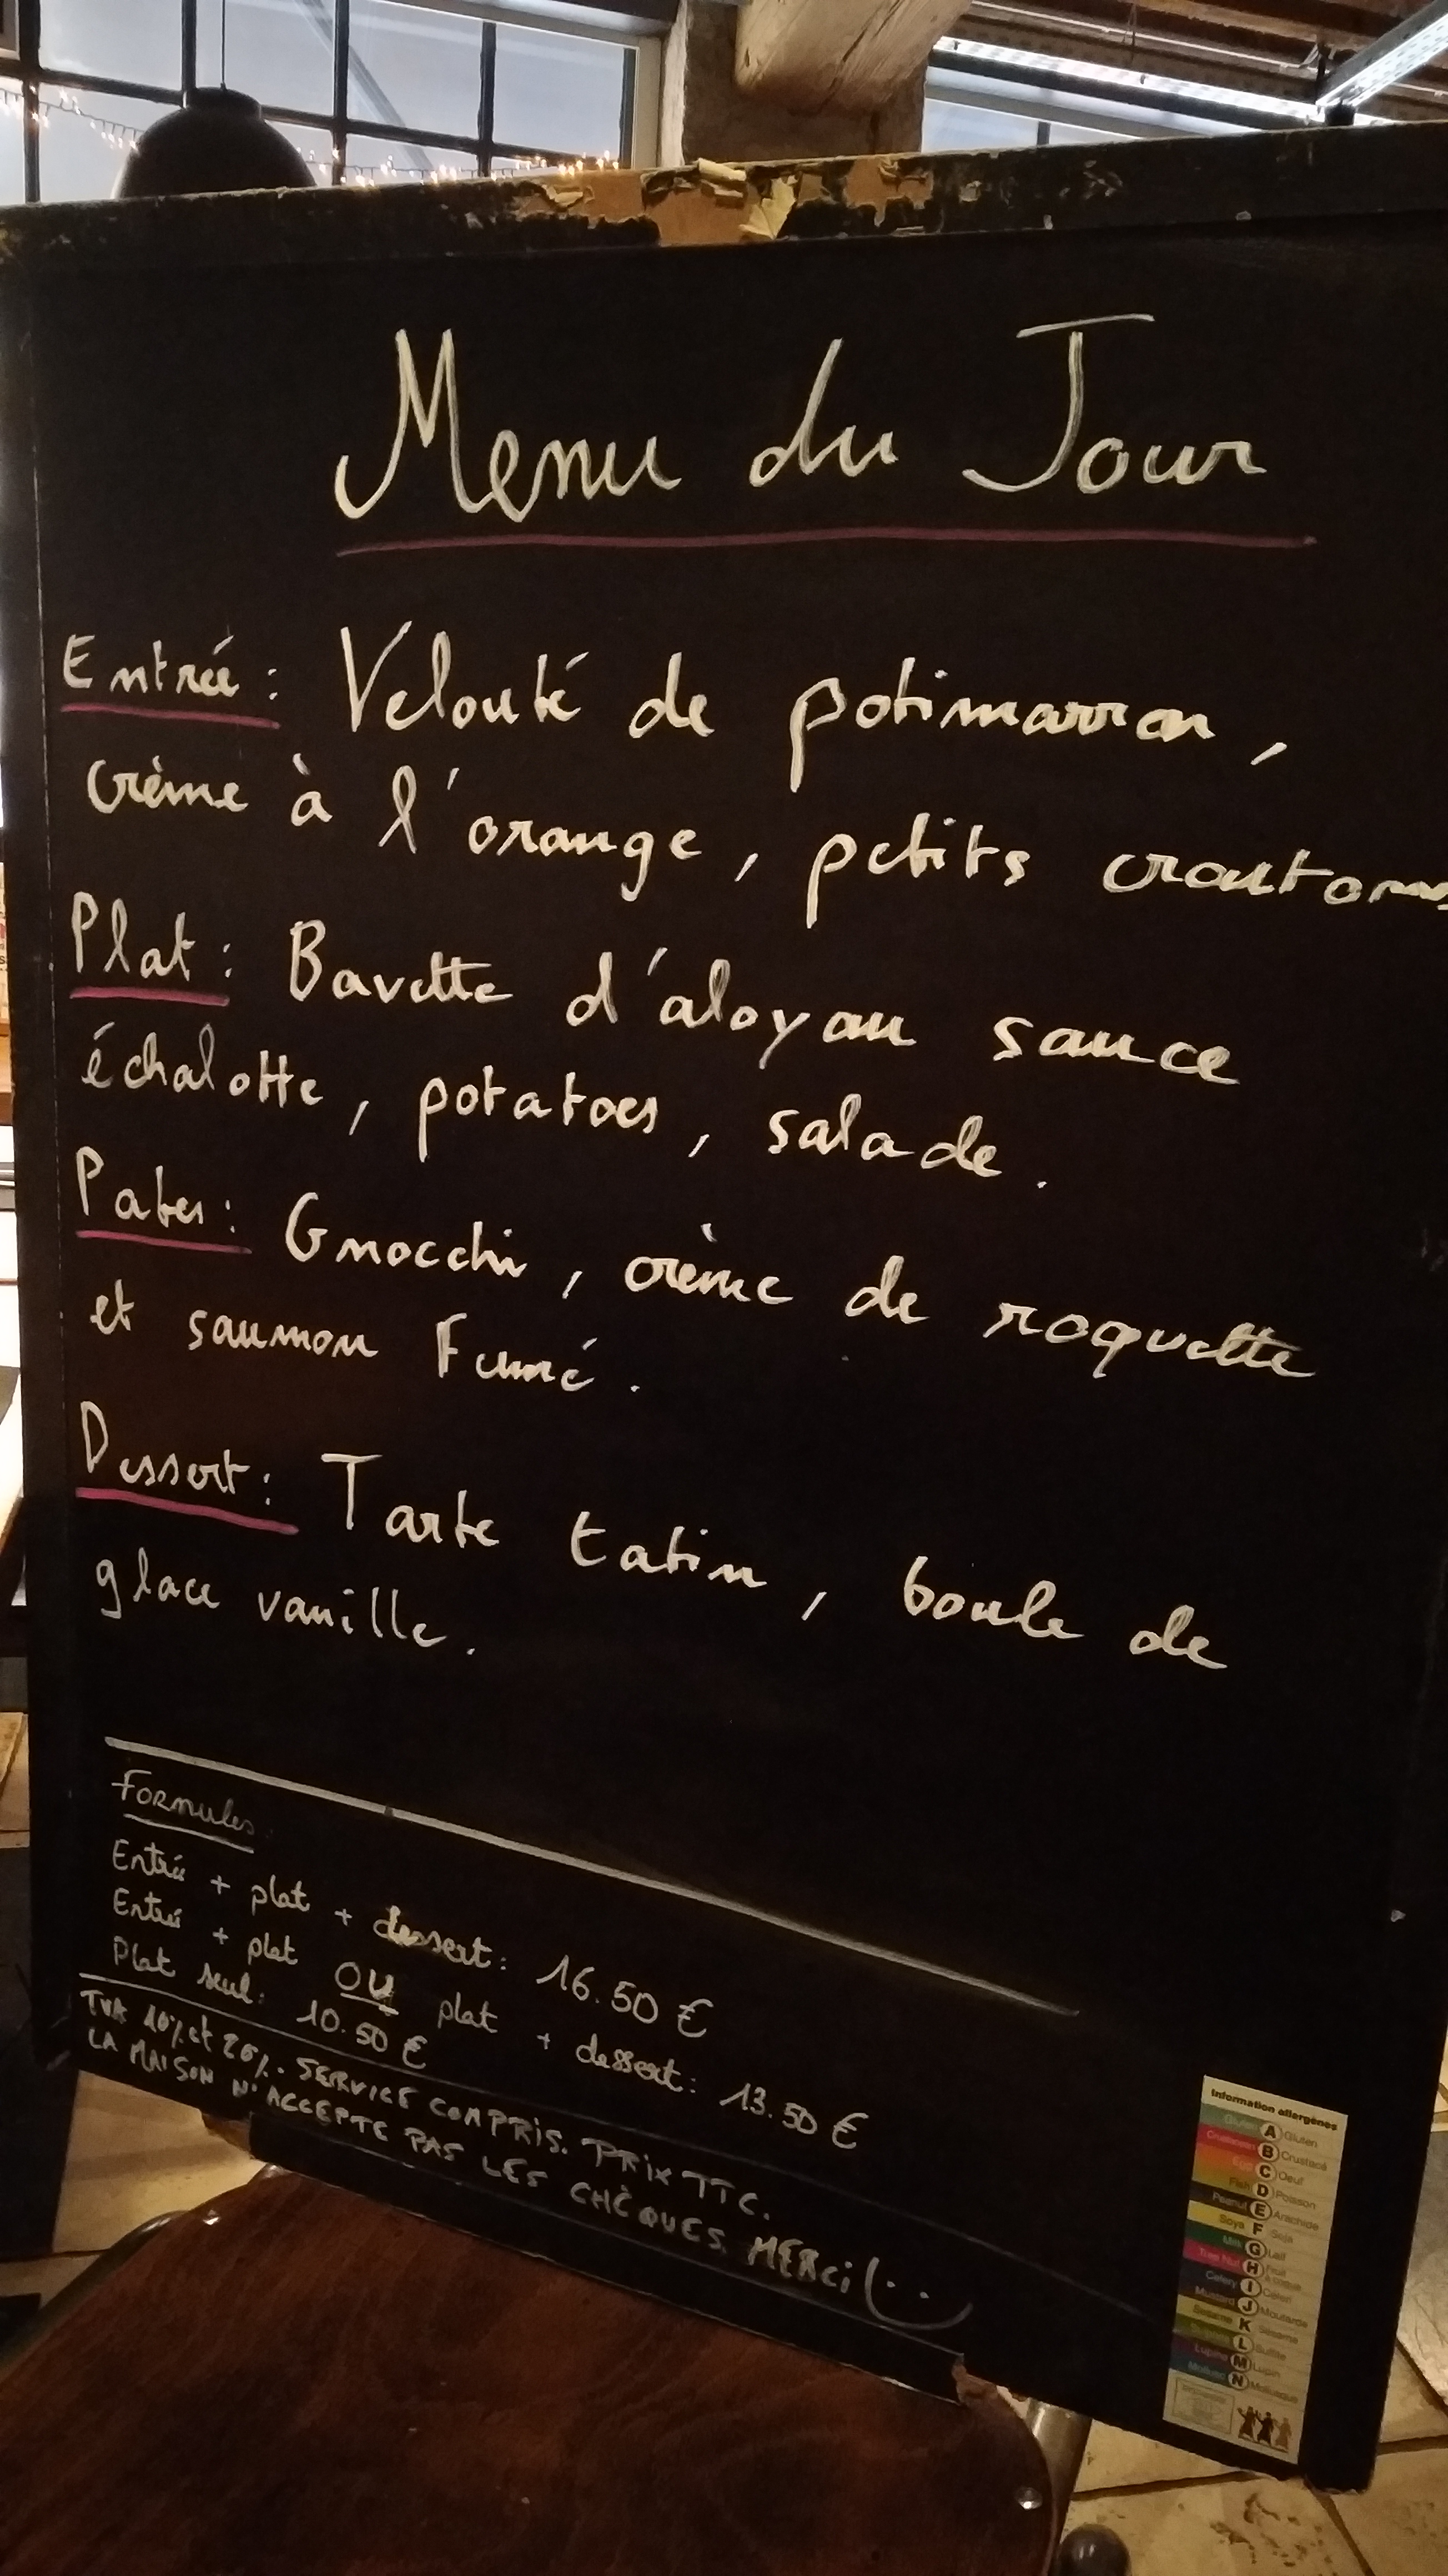 Menu du Jour
Entrée : Velouté de potimarron,
crème à l'orange, petits croutons
Plat : Bavette d'aloyau sauce
échalotte, potatoes, salade.
Pates : Gnocchi, crème de roquette
et saumon Fumé.
Dessert : Tarte tatin, boule de
glace vanille.
Formules:
Entrée + plat + dessert : 16.50 €
Entrée + plat OU plat + dessert : 13.50 €
Plat seul : 10.50 €
TVA 10% et 20%. SERVICE COMPRIS. PRIX TTC.
LA MAISON N'ACCEPTE PAS LES CHÈQUES. MERCI
Information allergènes
Gluten A Gluten
Crustacean B Crustacé
Egg C Oeuf
Fish D Poisson
Peanut E Arachide
Soya F Soja
Milk G Lait
Tree Nut H Fruit
Celery I Céleri
Mustard J Moutarde
Sesame K Sésame
L Sulfite
Lupine M Lupin
Mollusc N Mollusque